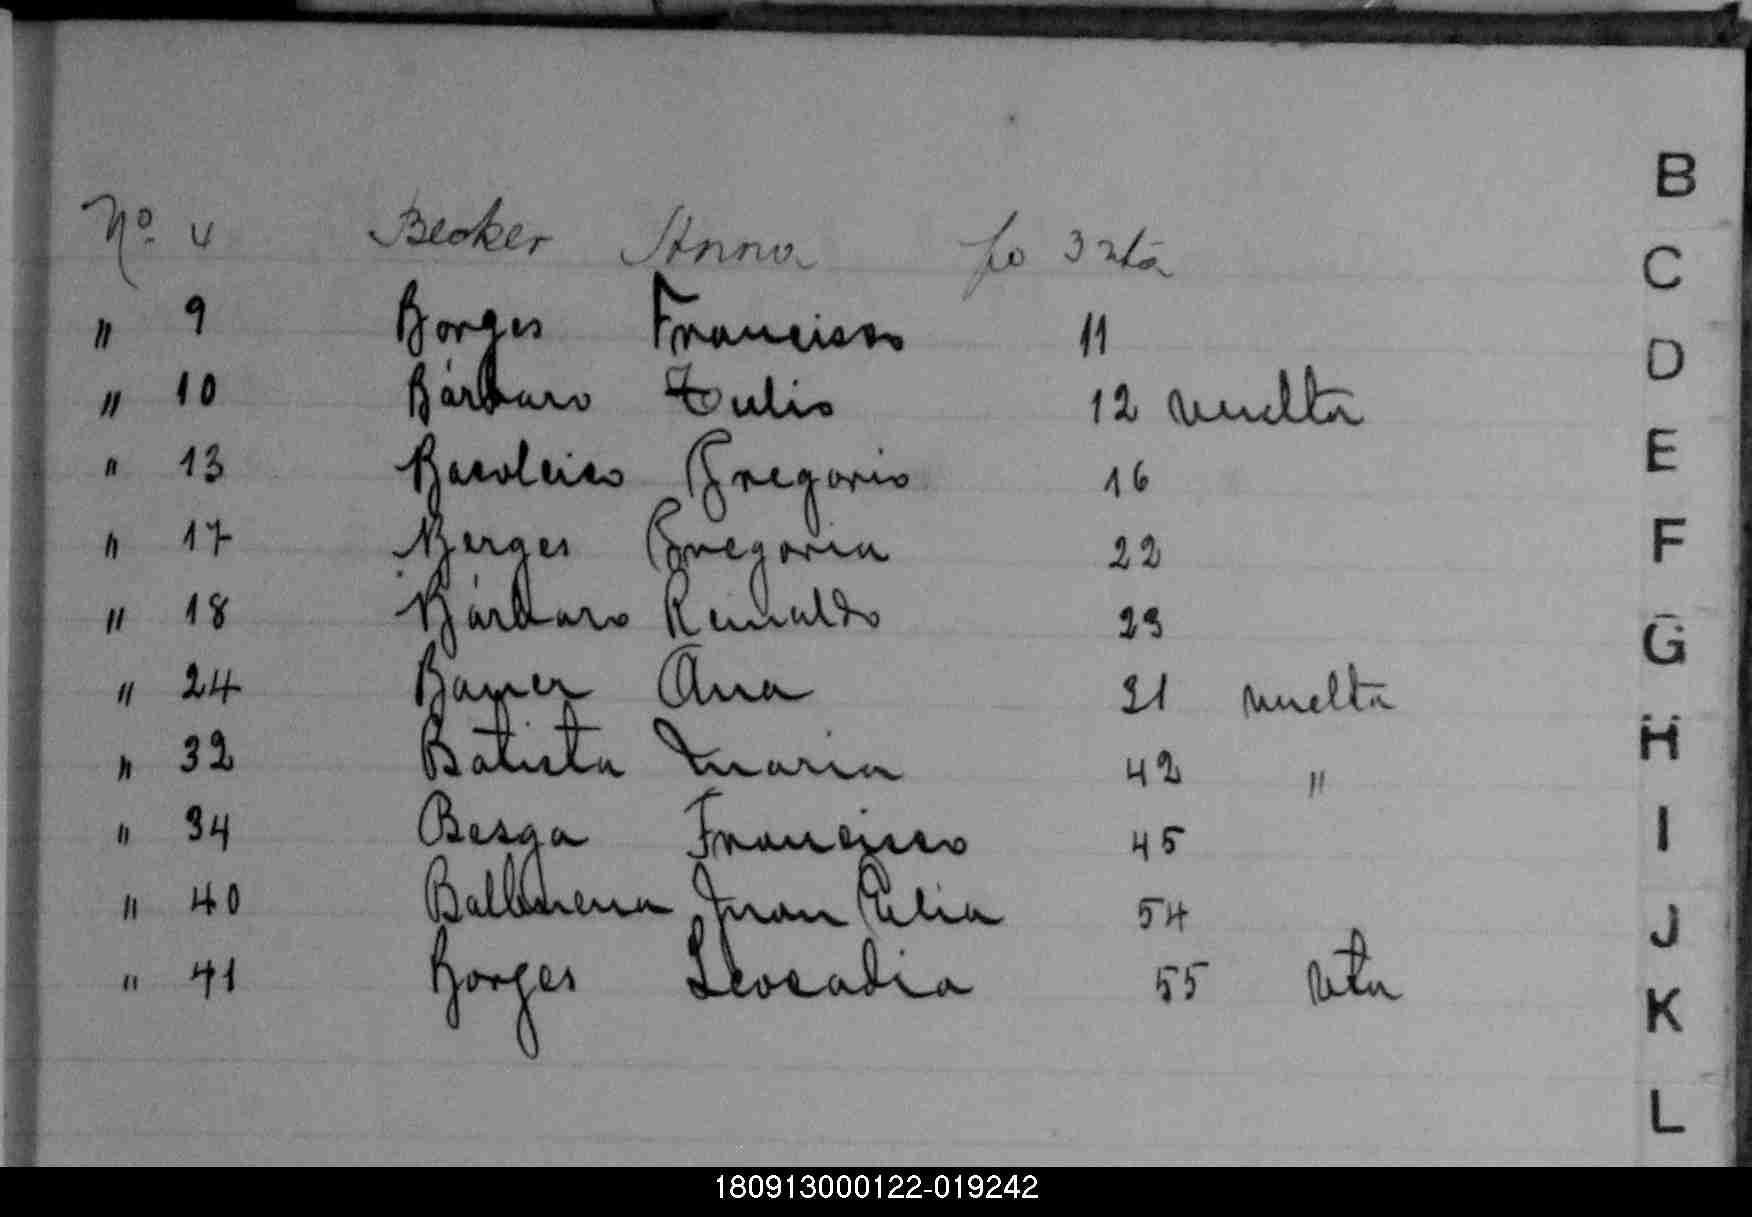 B
Nº 4 Becker Anna fo 3 vta
C
" 9 Borges Francisco 11
D
" 10 Bárbaro Tulio 12 vuelta
E
" 13 Gregorio 16
F
" 17 Berges Gregoria 22
" 18 Bárbaro Reinaldo 23
G
" 24 Bauer Ana 31 vuelta
H
" 32 Batista Maria 42 "
I
" 34 Besga Francisco 45
J
" 40 Balbuena Juan 54
" 41 Borges Leocadia 55 vta
K
L
180913000122-019242